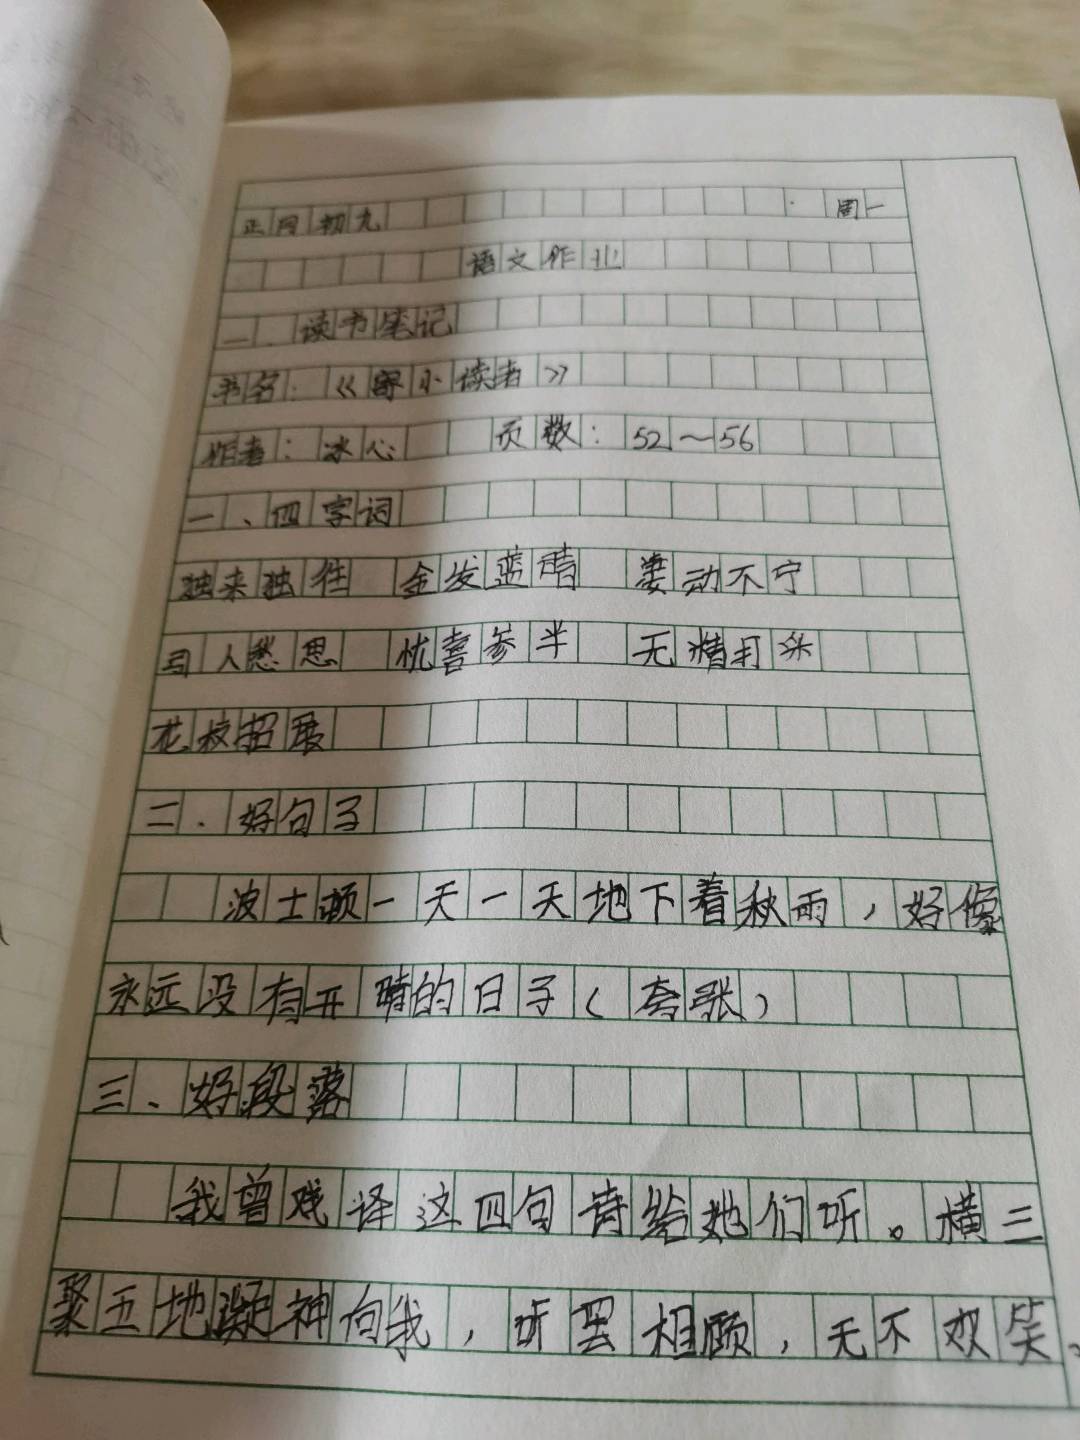 正月初九 周一
语文作业
一.读书笔记
书名:《寄小读者》
作者:冰心 页数:52～56
一、四字词
独来独往 金发蓝睛 凄动不宁
引人愁思 忧喜参半 无精打采
花枝招展
二.好句子
波士顿一天一天地下着秋雨,好像
永远没有开晴的日子(夸张)
三、好段落
我曾戏译这四句诗给她们听。横三
聚五地凝神向我,听罢相顾,无不欢笑。